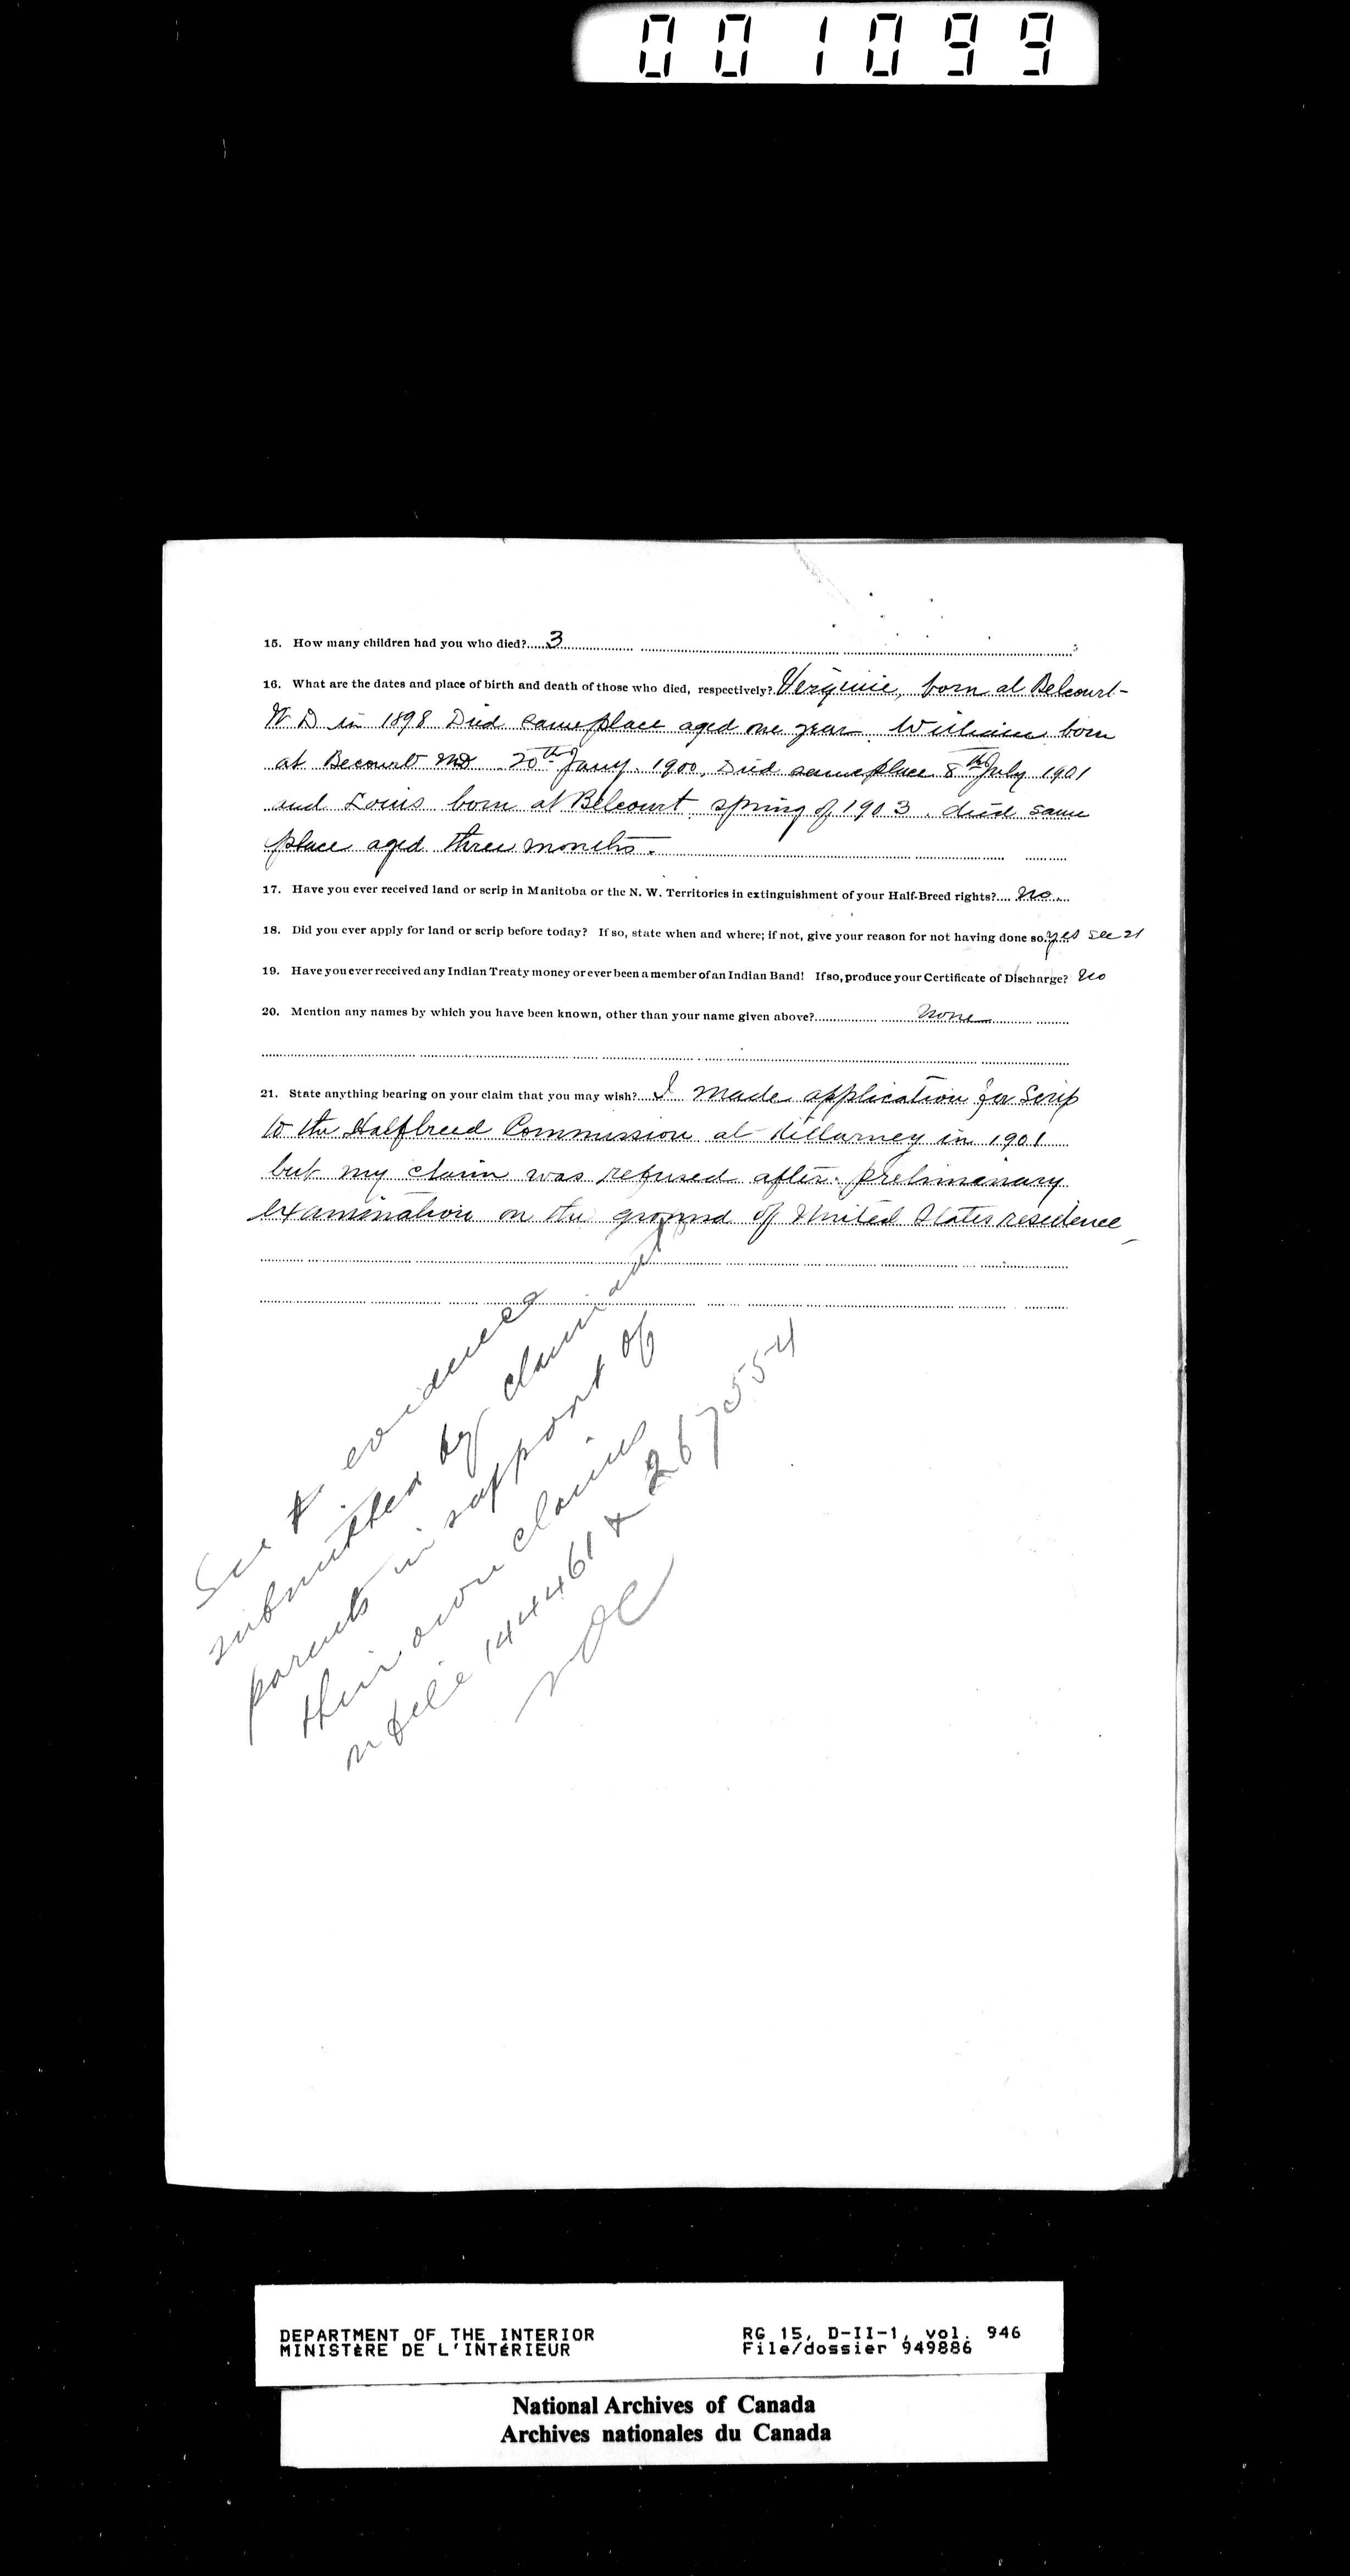 001099
15. How many children had you who died? 3
16. What are the dates and place of birth and death of those who died, respectively? Virginie, born at Belcourt-
N D in 1898 Died same place aged one year. William born
at Becourt ND 20th Jany. 1900, Died same place 8th July 1901
and Louis born at Belcourt spring of 1903. died same
place aged three months.
17. Have you ever received land or scrip in Manitoba or the N. W. Territories in extinguishment of your Half-Breed rights? No.
18. Did you ever apply for land or scrip before today? If so, state when and where; if not, give your reason for not having done so. Yes see 21
19. Have you ever received any Indian Treaty money or ever been a member of an Indian Band! If so, produce your Certificate of Discharge? No
20. Mention any names by which you have been known, other than your name given above? None
21. State anything bearing on your claim that you may wish? I made application for Scrip
to the Halfbreed Commission at Killarney in 1901
but my claim was refused after preliminary
examination on the ground of United States residence
See evidence
submitted by claimant
parents in support of
their own claims
n file 144461 & 267554
DEPARTMENT OF THE INTERIOR
MINISTÈRE DE L'INTÉRIEUR
RG 15, D-II-1, vol. 946
File/dossier 949886
National Archives of Canada
Archives nationales du Canada